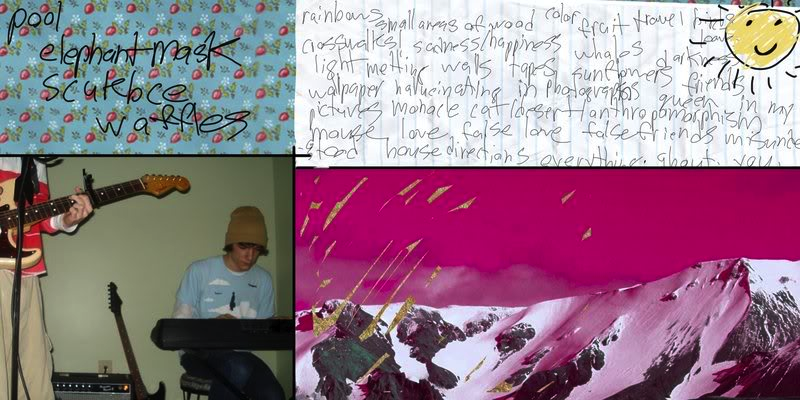 pool
elephant mask
waffles
rainbows small areas of wood i color fruit travel
crosswalks sadness/happiness whales darkness
light melting walls tapes sunflowers friends
wallpaper hallucinating in photographs queen in my
pictures monocle cat/desert/anthropomorphism
mouse love false love false friends misunde
stood house directions everything about you.